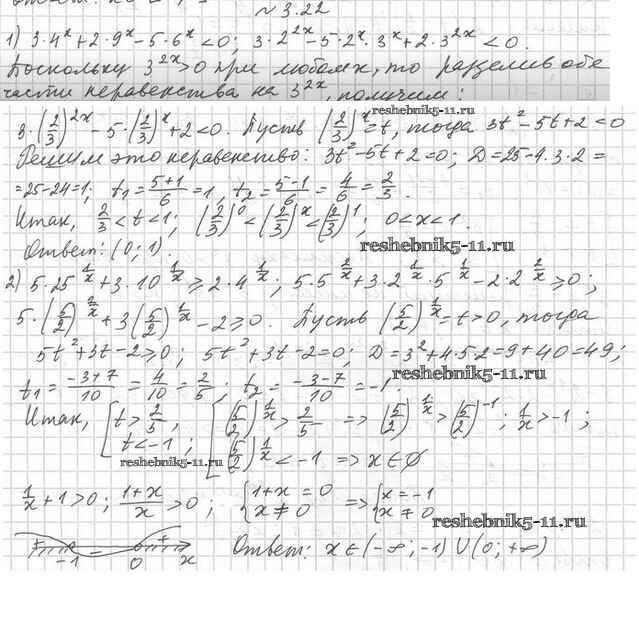 № 3.22
1) 3·4^x + 2·9^x - 5·6^x < 0; 3·2^{2x} - 5·2^x·3^x + 2·3^{2x} < 0.
Поскольку 3^{2x} > 0 при любом x, то разделив обе
части неравенства на 3^{2x}, получим:
reshebnik5-11.ru
3·(2/3)^{2x} - 5·(2/3)^x + 2 < 0. Пусть (2/3)^x = t, тогда 3t² - 5t + 2 < 0
Решим это неравенство: 3t² - 5t + 2 = 0; D = 25 - 4·3·2 =
= 25 - 24 = 1; t₁ = (5+1)/6 = 1, t₂ = (5-1)/6 = 4/6 = 2/3.
Итак, 2/3 < t < 1; (2/3)^0 < (2/3)^x < (2/3)^1; 0 < x < 1.
Ответ: (0; 1).
reshebnik5-11.ru
2) 5·25^{1/x} + 3·10^{1/x} ≥ 2·4^{1/x}; 5·5^{2/x} + 3·2^{1/x}·5^{1/x} - 2·2^{2/x} ≥ 0;
5·(5/2)^{2/x} + 3(5/2)^{1/x} - 2 ≥ 0. Пусть (5/2)^{1/x} = t > 0, тогда
5t² + 3t - 2 ≥ 0; 5t² + 3t - 2 = 0; D = 3² + 4·5·2 = 9 + 40 = 49;
reshebnik5-11.ru
t₁ = (-3+7)/10 = 4/10 = 2/5; t₂ = (-3-7)/10 = -1.
Итак, [t > 2/5, t < -1; [(5/2)^{1/x} > 2/5 => (5/2)^{1/x} > (5/2)^{-1}; 1/x > -1;
(5/2)^{1/x} < -1 => x ∈ ∅
reshebnik5-11.ru
1/x + 1 > 0; (1+x)/x > 0; {1+x = 0 x ≠ 0 => {x = -1 x ≠ 0
reshebnik5-11.ru
+ - + -1 0 x
Ответ: x ∈ (-∞; -1) ∪ (0; +∞)